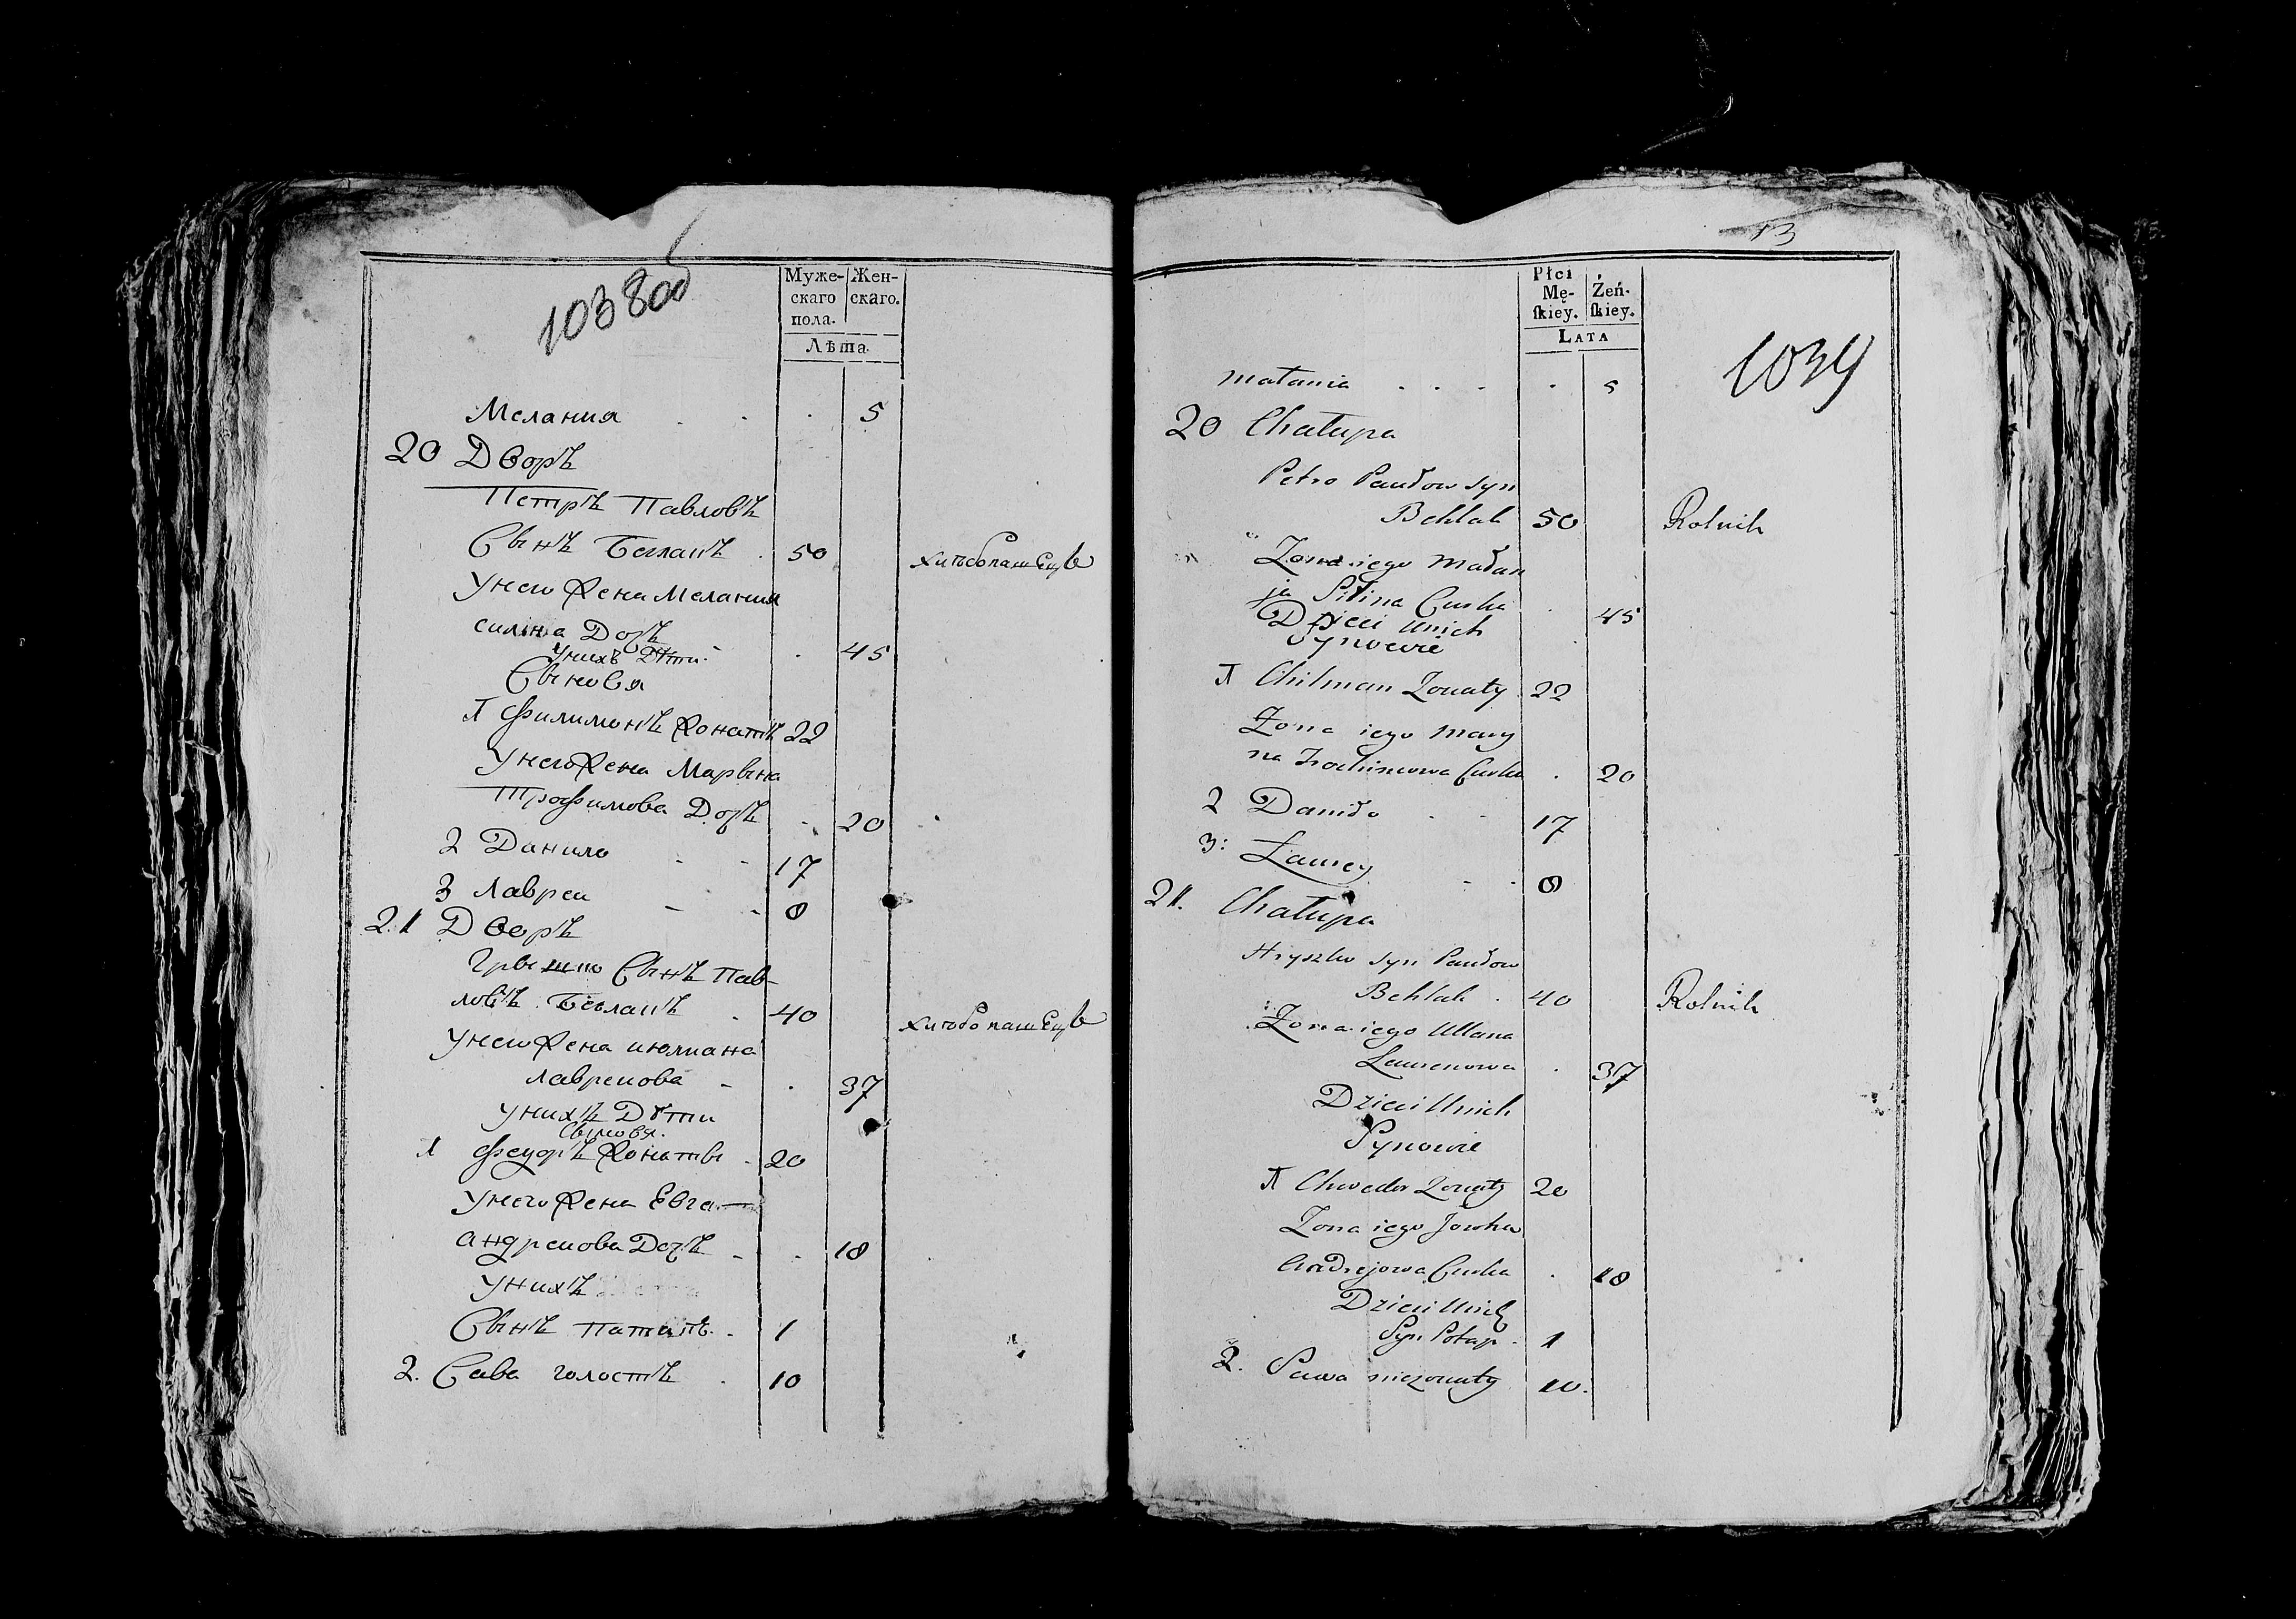 1038об
Муже- Жен-
скаго скаго.
пола.
Лѣта.
Мелания . . . 5
20 Дворъ
Петръ Павловъ
Сынъ Беглакъ . 50 хлѣбопашецъ
Унего Жена Мелания
силина Дочь . 45
Унихъ Дѣти.
Сыновя
1 Филимонъ Жонатъ 22
Унего Жена Марына
Трофимова Дочь . 20
2 Данило - - 17
3 Лавреи - - 8
21 Дворъ
Грышко Сынъ Пав-
ловъ Беглакъ . 40 хлѣбопашецъ
Унего Жена июлиана
Лавренова - . 37
Унихъ Дѣти
Сыновя.
1 Феодръ Жонаты . 20
Унего Жена Евга
Андреиова Дочь - - 18
Унихъ
Сынъ Патапъ. - 1
2. Сава голостъ . 10
13
1039
Płci
Mę- Żeń-
ſkiey. ſkiey.
LATA
Małania . . . . 5
20 Chałupa
Petro Pawłow syn
Behlak 50 Rolnik
Zona iego Małan
ja Silina Curka . 45
Dzieci Unich
Synowie
1 Chilman Zonaty 22
Zona iego Mary
na Trochimowa Curka . 20
2 Daniło . . 17
3: Ławrey - - 8
21. Chałupa
Hryszko syn Pawłow
Behlak . 40 Rolnik
Zona iego Ullana
Ławrenowa . 37
Dzieci Unich
Synowie
1 Chwedor Zonaty 20
Zona iego Jowha
Andrejowa Curka . 18
Dzieci Unich
Syn Potap . 1
2. Sawa niezonaty 10.